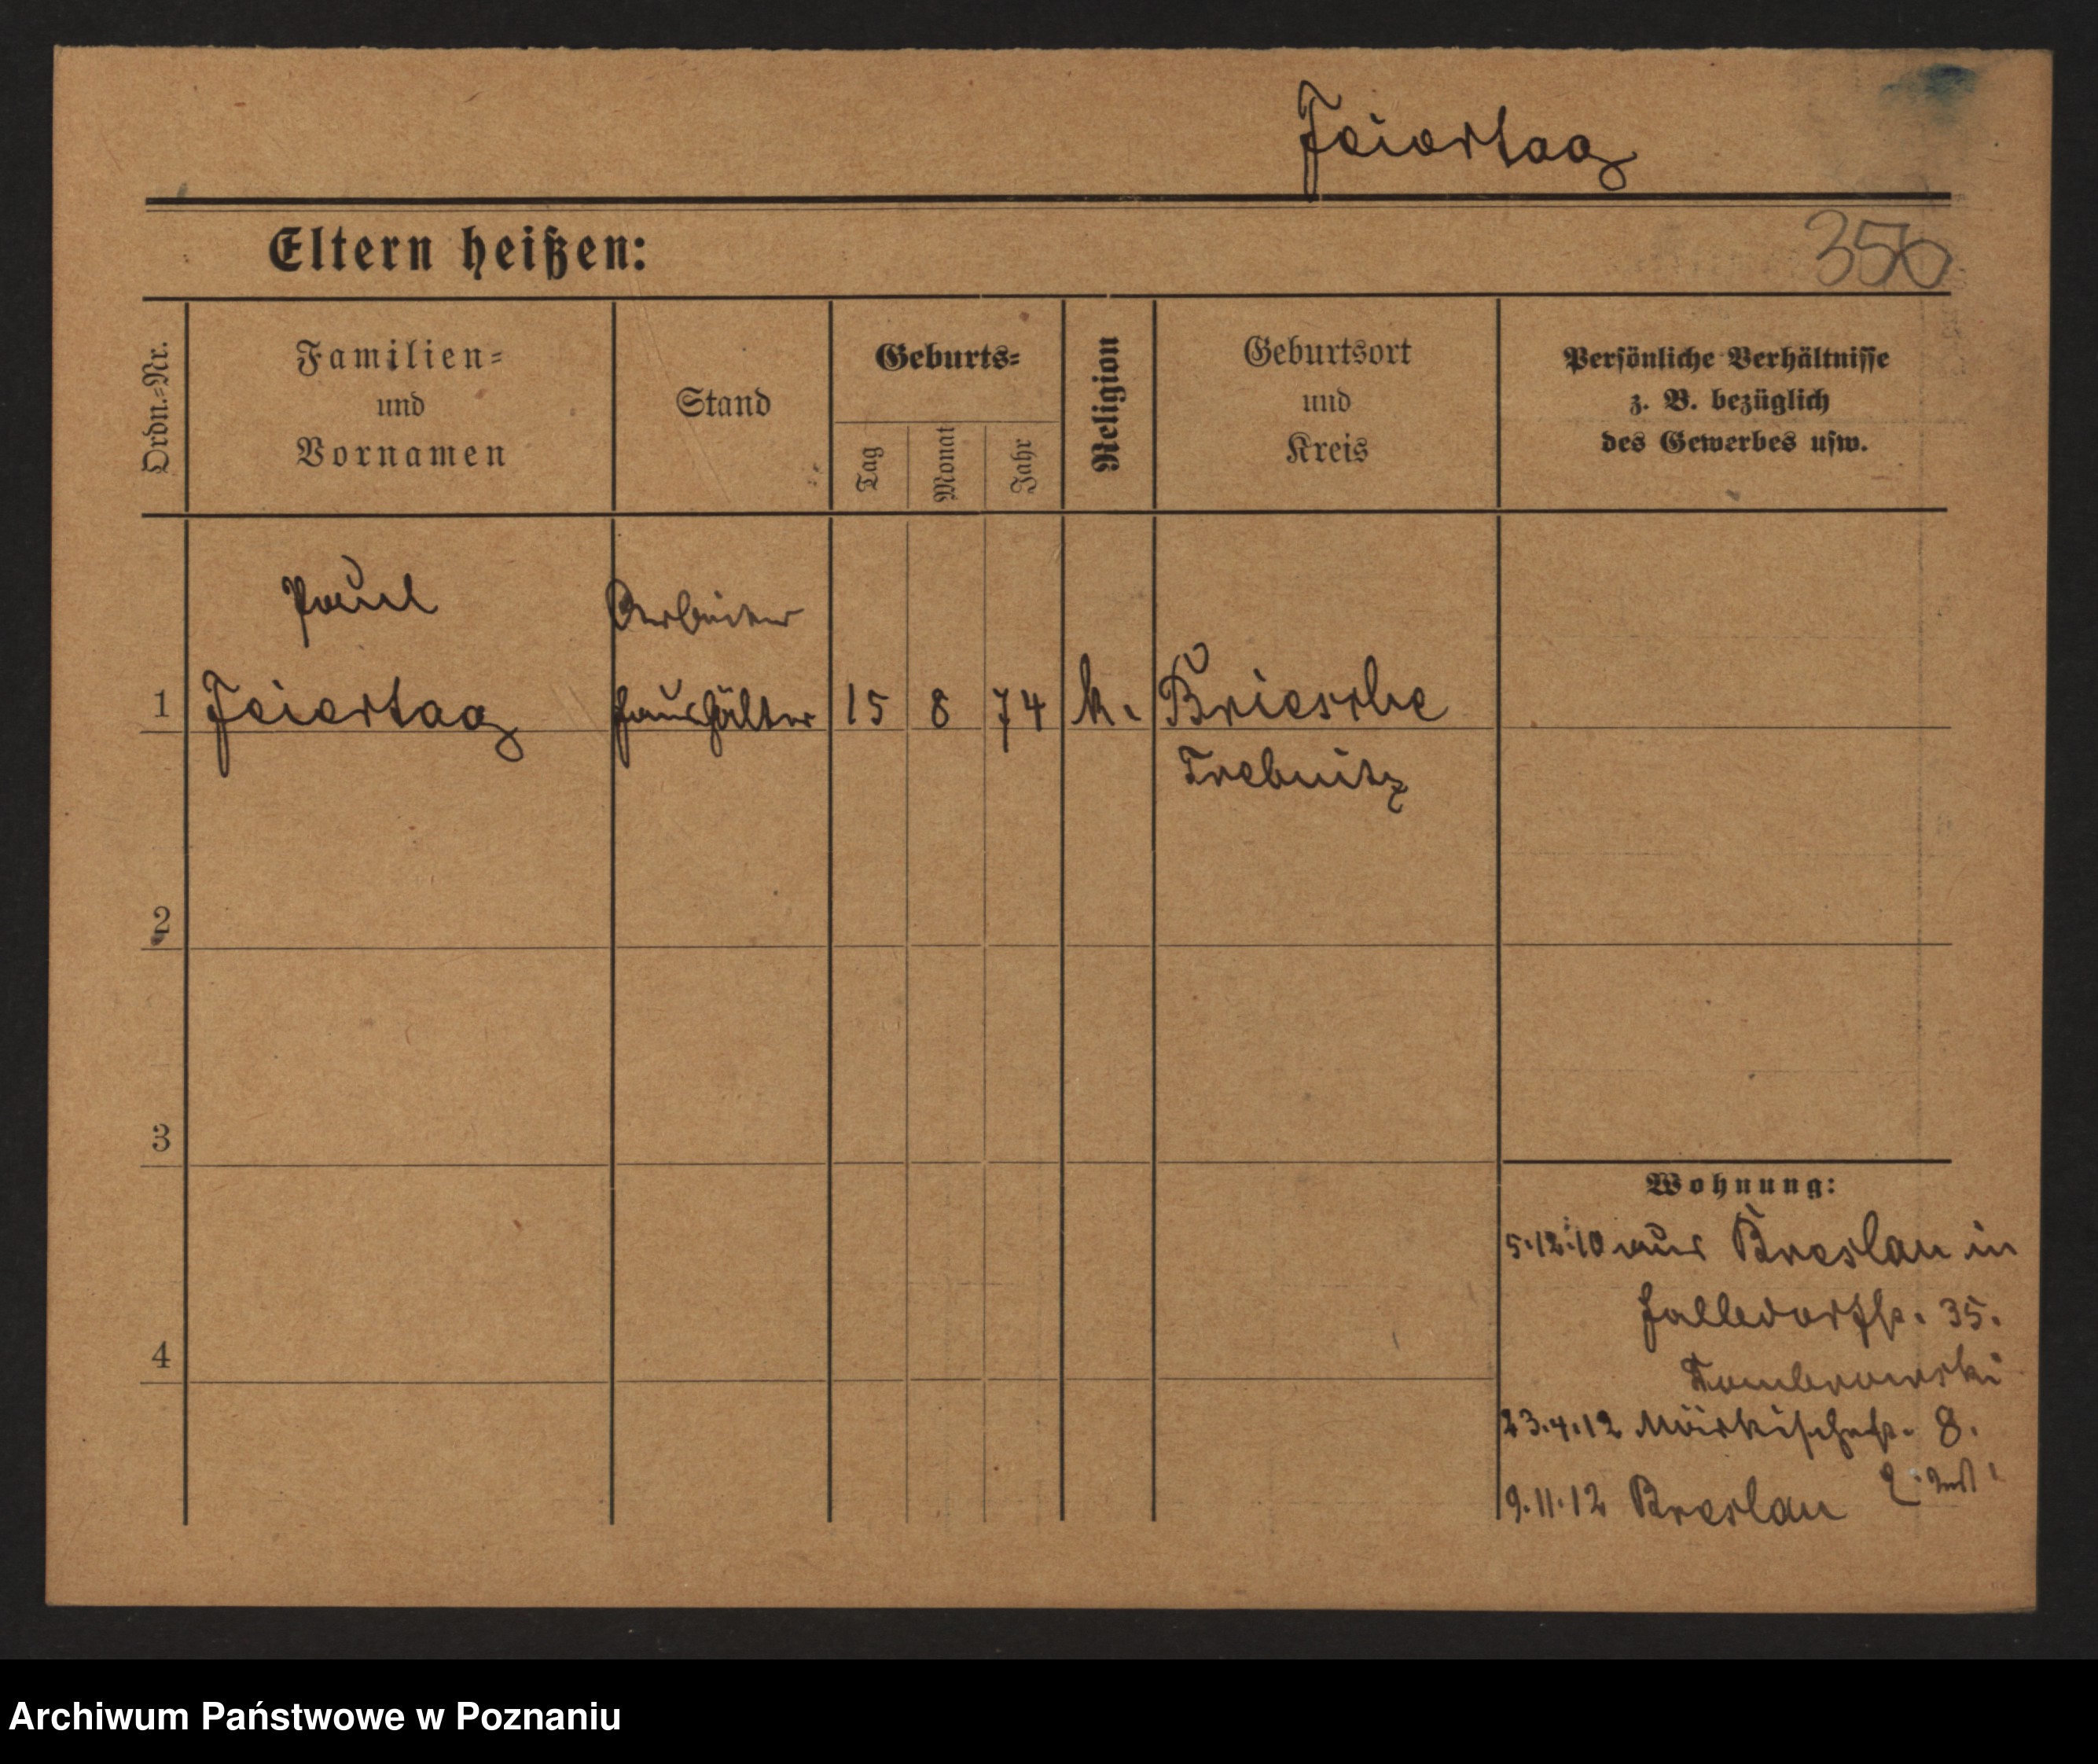 Feiertag
Eltern heißen:
356
Ordn.=Nr.
Familien=
und
Vornamen
Stand
Geburts=
Tag
Monat
Jahr
Religion
Geburtsort
und
Kreis
Persönliche Verhältnisse
z. B. bezüglich
des Gewerbes usw.
Paul
Arbeiter
1 Feiertag Haushälter 15 8 74 k.
Trebnitz
2
3
4
Wohnung:
5.12.10 aus Breslau in
35.
Dombrowski
23.4.12 Märkischestr. 8.
9.11.12 Breslau
Archiwum Państwowe w Poznaniu